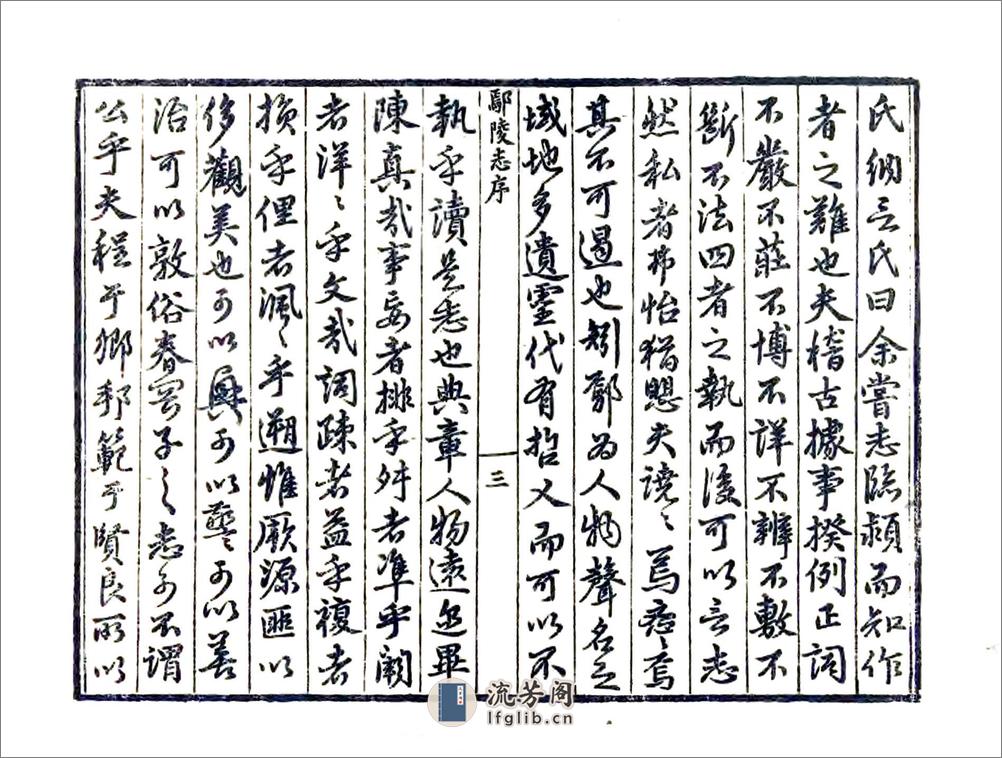 氏納言氏曰余嘗志臨潁而知作
者之難也夫稽古據事揆例正詞
不嚴不莊不博不詳不辨不敷不
斷不法四者之執而後可以言志
然私者拂怡猶思夫譊〻焉 焉
其不可遏也 鄢為人物聲名之
域地多遺靈代有哲乂而可以不
鄢陵志序
三
執乎讀是志也典章人物遠近畢
陳真哉事妄者排乎舛者準乎闕
者洋〻乎文哉詞疎者益乎複者
損乎俚者渢〻乎遡惟厥源匪以
侈觀美也可以興可以鑒可以善
治可以敦俗春 子之志可不謂
公乎夫程于鄉邦範于賢良所以
流芳阁
lfglib.cn